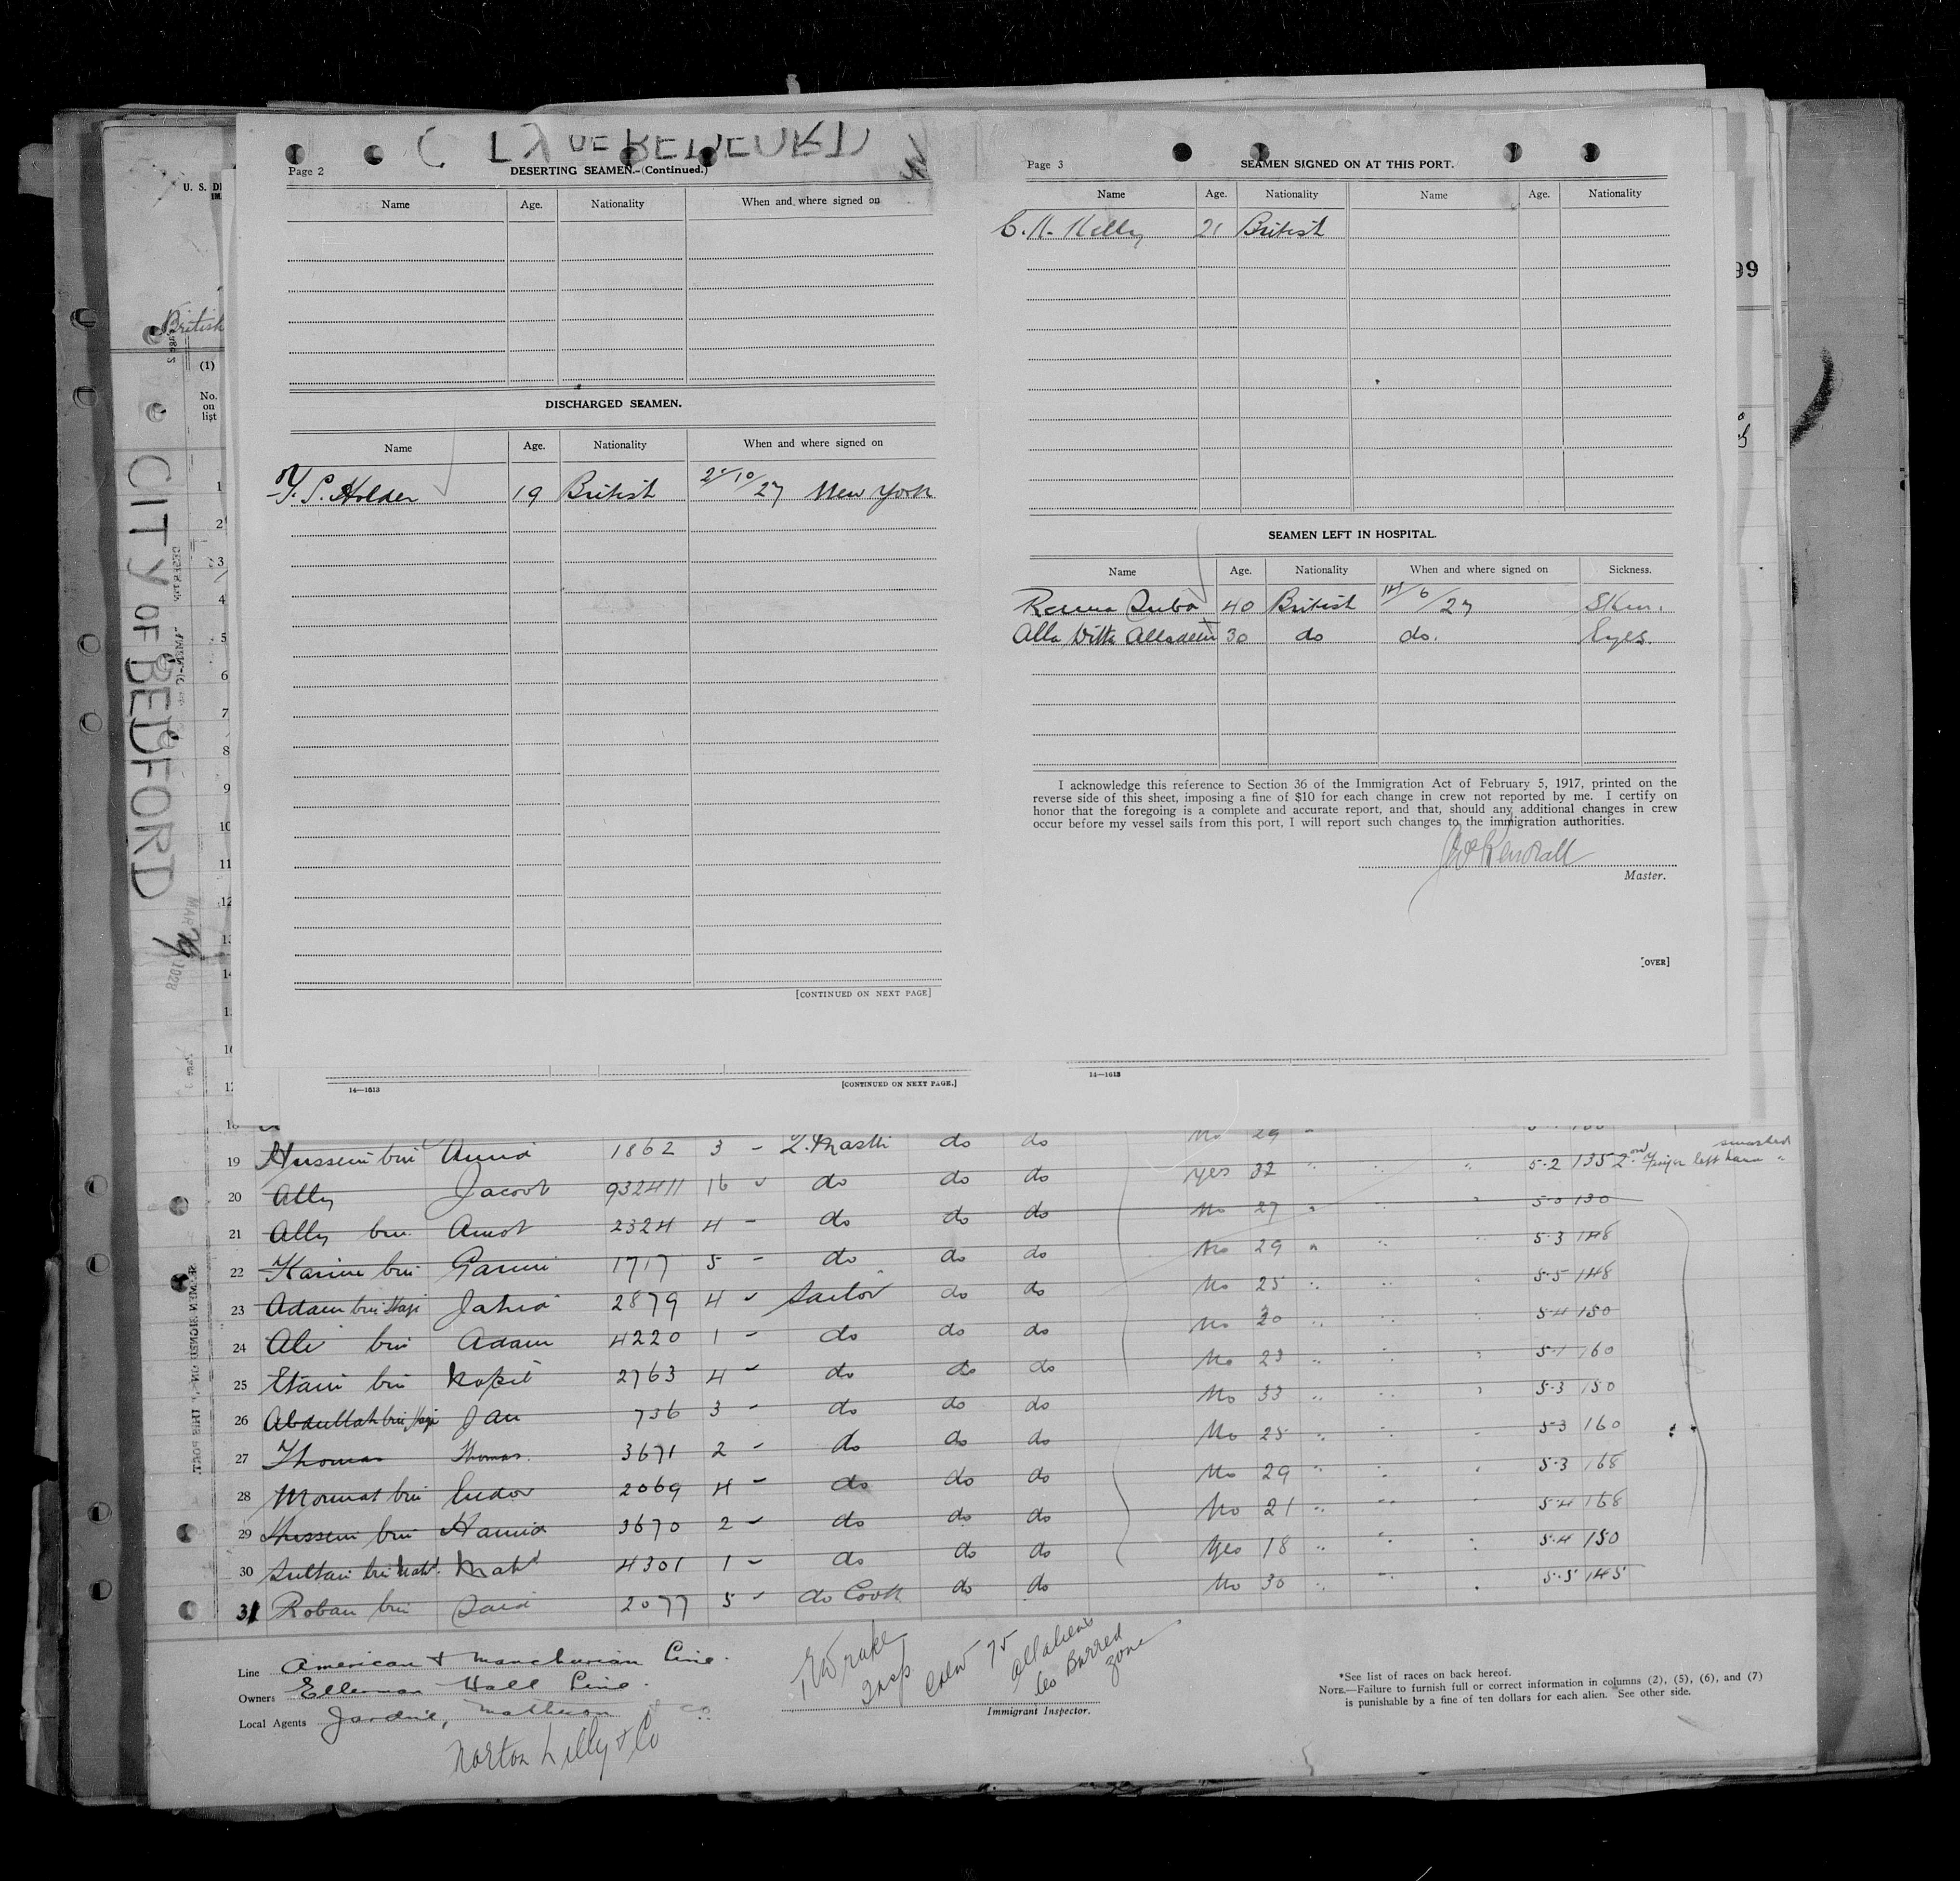 CITY OF BEDFORD
Page 2
DESERTING SEAMEN.-(Continued.)
Name Age. Nationality When and where signed on
DISCHARGED SEAMEN.
Name Age. Nationality When and where signed on
Y. S. Holder 19 British 10/27 New York
[CONTINUED ON NEXT PAGE]
Page 3
SEAMEN SIGNED ON AT THIS PORT.
Name Age. Nationality Name Age. Nationality
21 British
SEAMEN LEFT IN HOSPITAL.
Name Age. Nationality When and where signed on Sickness.
40 British 14/6/27 Skin.
Alla Ditta 30 do do. Eyes.
I acknowledge this reference to Section 36 of the Immigration Act of February 5, 1917, printed on the
reverse side of this sheet, imposing a fine of $10 for each change in crew not reported by me. I certify on
honor that the foregoing is a complete and accurate report, and that, should any additional changes in crew
occur before my vessel sails from this port, I will report such changes to the immigration authorities.
Master.
[OVER]
14—1613
[CONTINUED ON NEXT PAGE.]
14—1613
U. S. D
British
(1)
No.
on
list
1
2
3
4
5
6
7
8
9
10
11
12
99
CITY OF BEDFORD
19 Hussein bin 1862 3 - do do No 29
20 Ally Jacoob 932411 16 do do do yes 32 5-2 135 2nd finger left hand smashed
21 Ally bin Amot 2324 4 - do do do No 27 5-0 130
22 Karim bin Garmi 1717 5 - do do do No 29 5-3 148
23 Adam bin Haji 2879 4 Sailor do do No 25 5-5 148
24 Ali bin Adam 4220 1 - do do do No 30 5-4 150
25 bin 2763 4 do do do No 23 5-1 160
26 Abdullah bin Haji Jan 736 3 - do do do No 33 5-3 150
27 Thomas Thomas. 3671 2 - do do do No 25 5-3 160
28 bin 2069 4 - do do do No 29 5-3 168
29 Hussein bin Hamid 3670 2 - do do do No 21 5-4 168
30 Sultan bin 4301 1 - do do do Yes 18 5-4 150
31 Roban bin Said 2077 5 do Cook do do No 30 5-5 145
Line American & Manchurian Line.
Owners Ellerman Hall Line.
Local Agents Jardine, Matheson & Co.
Norton Lilly & Co
Insp Crew 75 all aliens
Barred zone
Immigrant Inspector.
*See list of races on back hereof.
NOTE.—Failure to furnish full or correct information in columns (2), (5), (6), and (7)
is punishable by a fine of ten dollars for each alien. See other side.